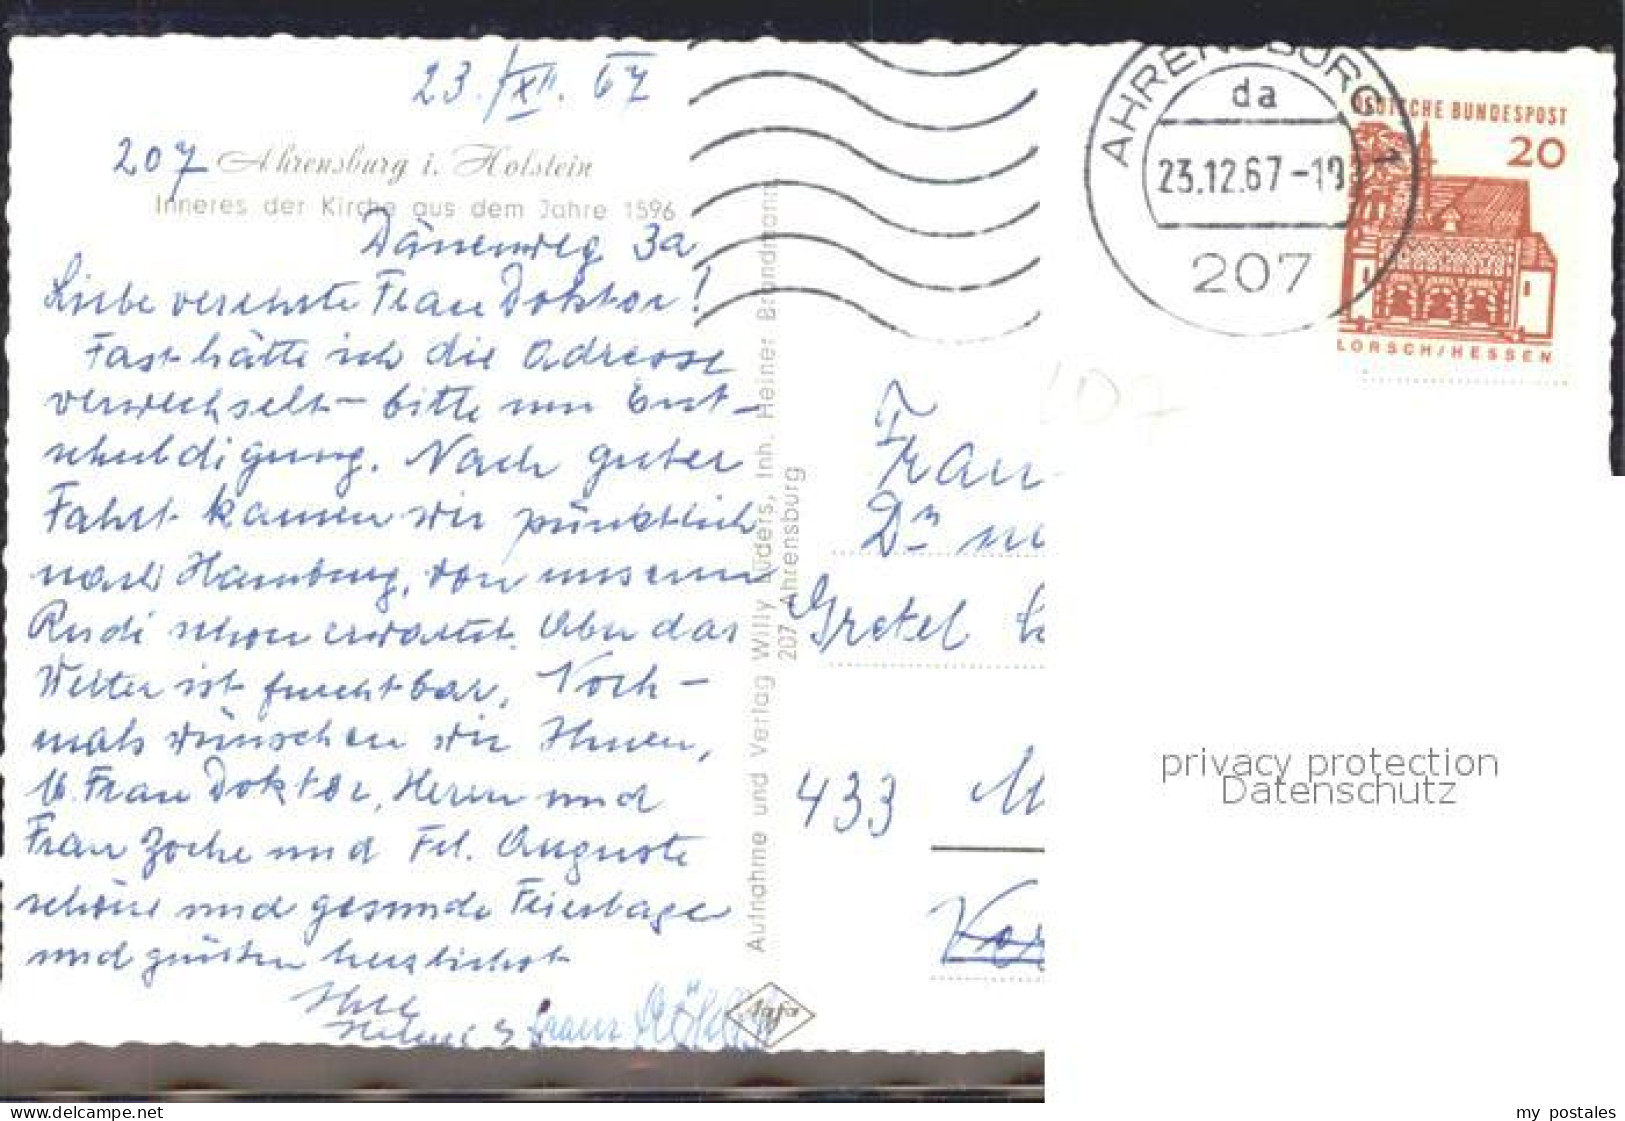 23./XII. 67
207 Ahrensburg i. Holstein
Inneres der Kirche aus dem Jahre 1596
Dänenweg 3a
Liebe verehrte Frau Doktor!
Fast hätte ich die Adresse
verwechselt – bitte um Ent-
schuldigung. Nach guter
Fahrt kamen wir pünktlich
nach Hamburg, von unserem
Rudi schon erwartet. Aber das
Wetter ist furchtbar. Noch-
mals wünschen wir Ihnen,
Frau Doktor, Herrn und
Frau Zoche und Frl. Auguste
schöne und gesunde Feiertage
und grüßen herzlichst
Ihre
Franz
Aufnahme und Verlag Willy Lüders, Inh. Heiner Brandmann,
207 Ahrensburg
Agfa
AHRENSBURG 1
da
23.12.67-19
207
DEUTSCHE BUNDESPOST
20
LORSCH/HESSEN
Frau
Dr. m
Gretel
433 M
privacy protection
Datenschutz
the delcampe.net
my postales